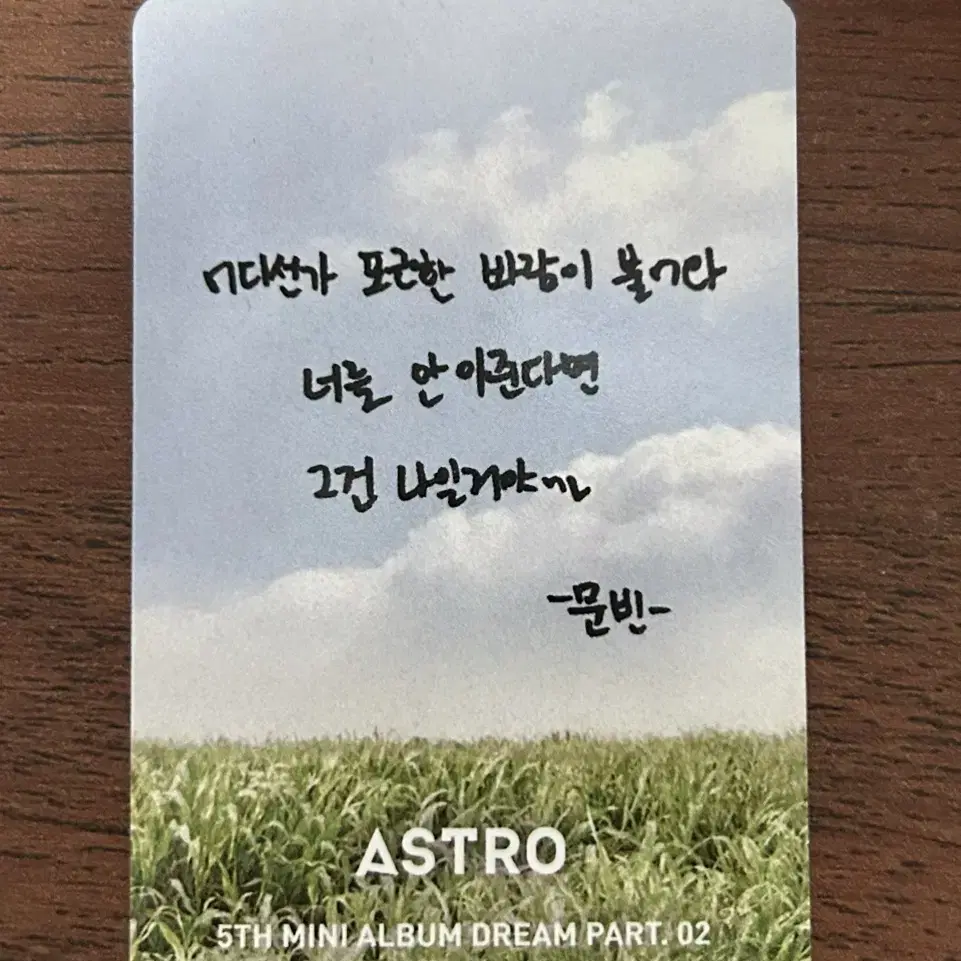 어디선가 포근한 바람이 불어와
너를 안아준다면
그건 나일거야^^
-문빈-
ASTRO
5TH MINI ALBUM DREAM PART. 02